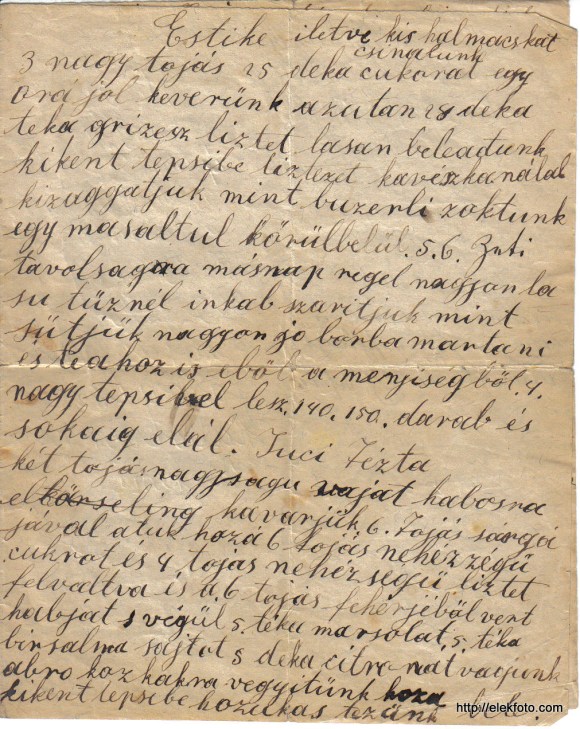 Estike iletve kis halmacskat
csinalunk
3 nagy tojás 25 deka cukoral egy
orá jol keverünk azutan 28 deka
teka grizesz liztet lasan beleadunk
kikent tepsibe liztezet kaveszkanálal
kizuggatjuk mint buzerli zoktunk
egy masaltul körülbelül. 5.6. Znti
tavolsagra másnap regel nagyon la
su tüznél inkab szaritjuk mint
sütjük nagyon jo borba martani
es teahoz is eböl a menjiségböl 4.
nagy tepsivel lesz. 140. 150. darab és
sokaig elál. Juci Tézta
két tojásnagysagu vajat habosra
eling kavarjuk 6. Tojás sargá
jával atuk hozá 6 tojás nehezzégü
cukrot es 4 tojás nehézségü liztet
felvaltva is a 6 tojás fehérjéböl vert
habjat s végül 5. téka marsolat, 5. téka
birsalma sajtot 5 deka citronát vagyunk
abro kozkakra vegyitünk hoza
kikent tepsibe hozukas tezünk bele.
http://elekfoto.com/